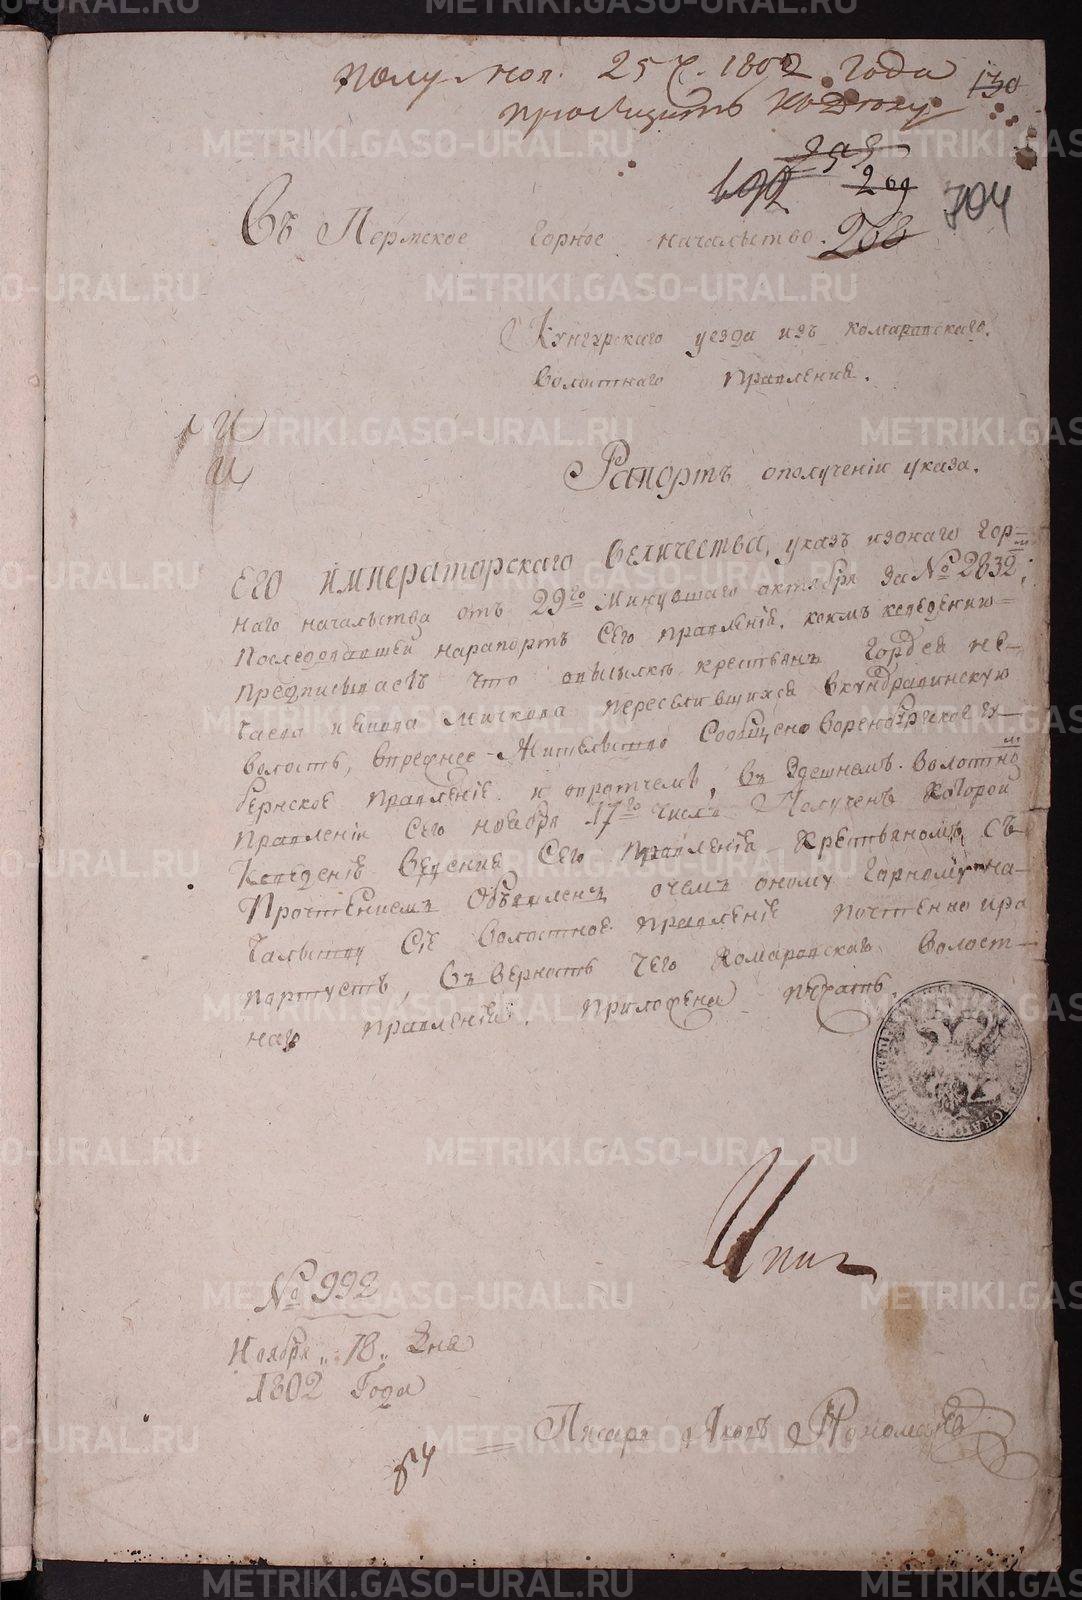 Полу ноя. 25 ч. 1802 Года
приобщить к делу
130
209
704
208
Въ Пермское Горное начальство.
Кунгурскаго уезда изъ комаровскаго
волостнаго правления.
Рапортъ ополучении указа.
Его императорскаго величества, указъ изонаго Гор=
наго начальства отъ 29го минувшаго октября за № 2832м,
Последовавшей нарапортъ сего правления, коимъ кведению
предписываетъ что овысылке крестьянъ Гордея Не-
чаева Мичкова переселившихся вкундравинскую
волость, впрежнее жительство Сообщено воренбургское гу-
бернское правление и опротчемъ, въ здешнемъ волостно
правлении сего ноября 17го числа Полученъ которой
Кведению сего правления крестьяномъ съ
Прочтениемъ Объявленъ очемъ оному Горному на-
чальству Сие волостное правление почтенно ра
портуетъ, въ верность чего комаровскаго волост-
наго правления. приложена печать
№ 992
Ноября „18„ дня
1802 Года
Писарь Яковъ Пономаревъ